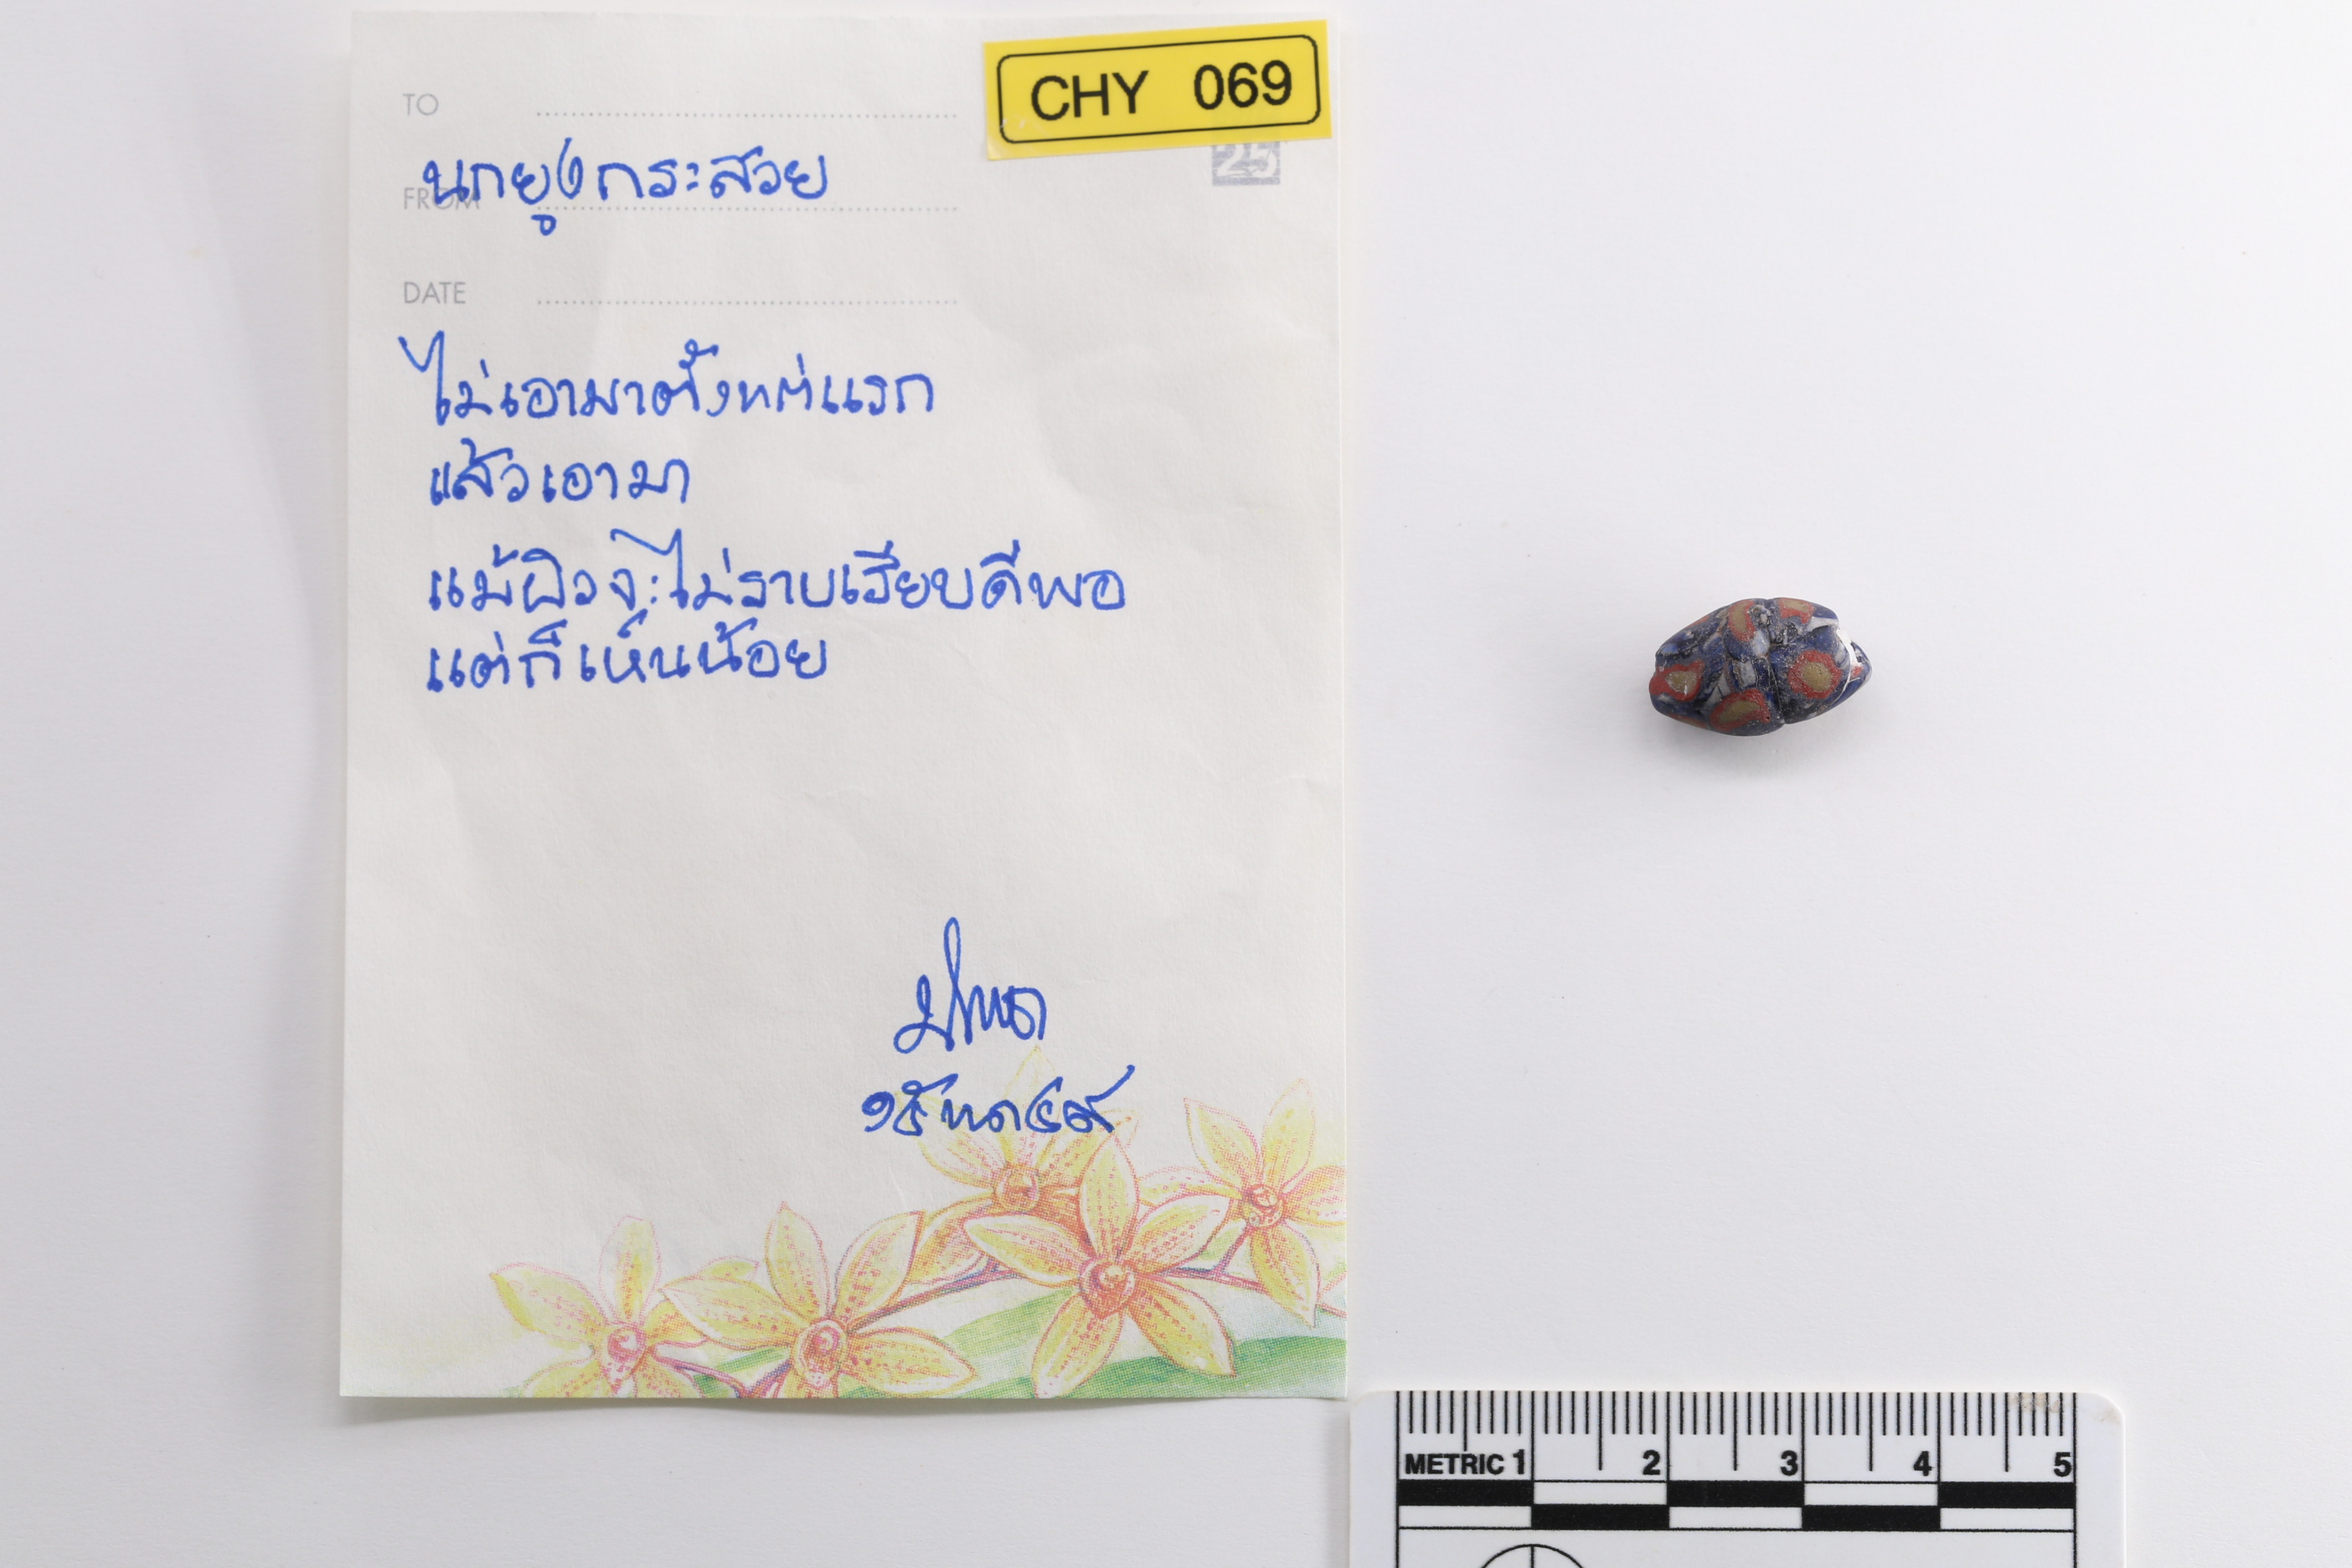 CHY 069
TO
25
นกยูงกระสวย
FROM
DATE
ไม่เอามาตั้งแต่แรก
แล้วเอามา
แม้ผิวจะไม่ราบเรียบดีพอ
แต่ก็เห็นน้อย
METRIC 1 2 3 4 5